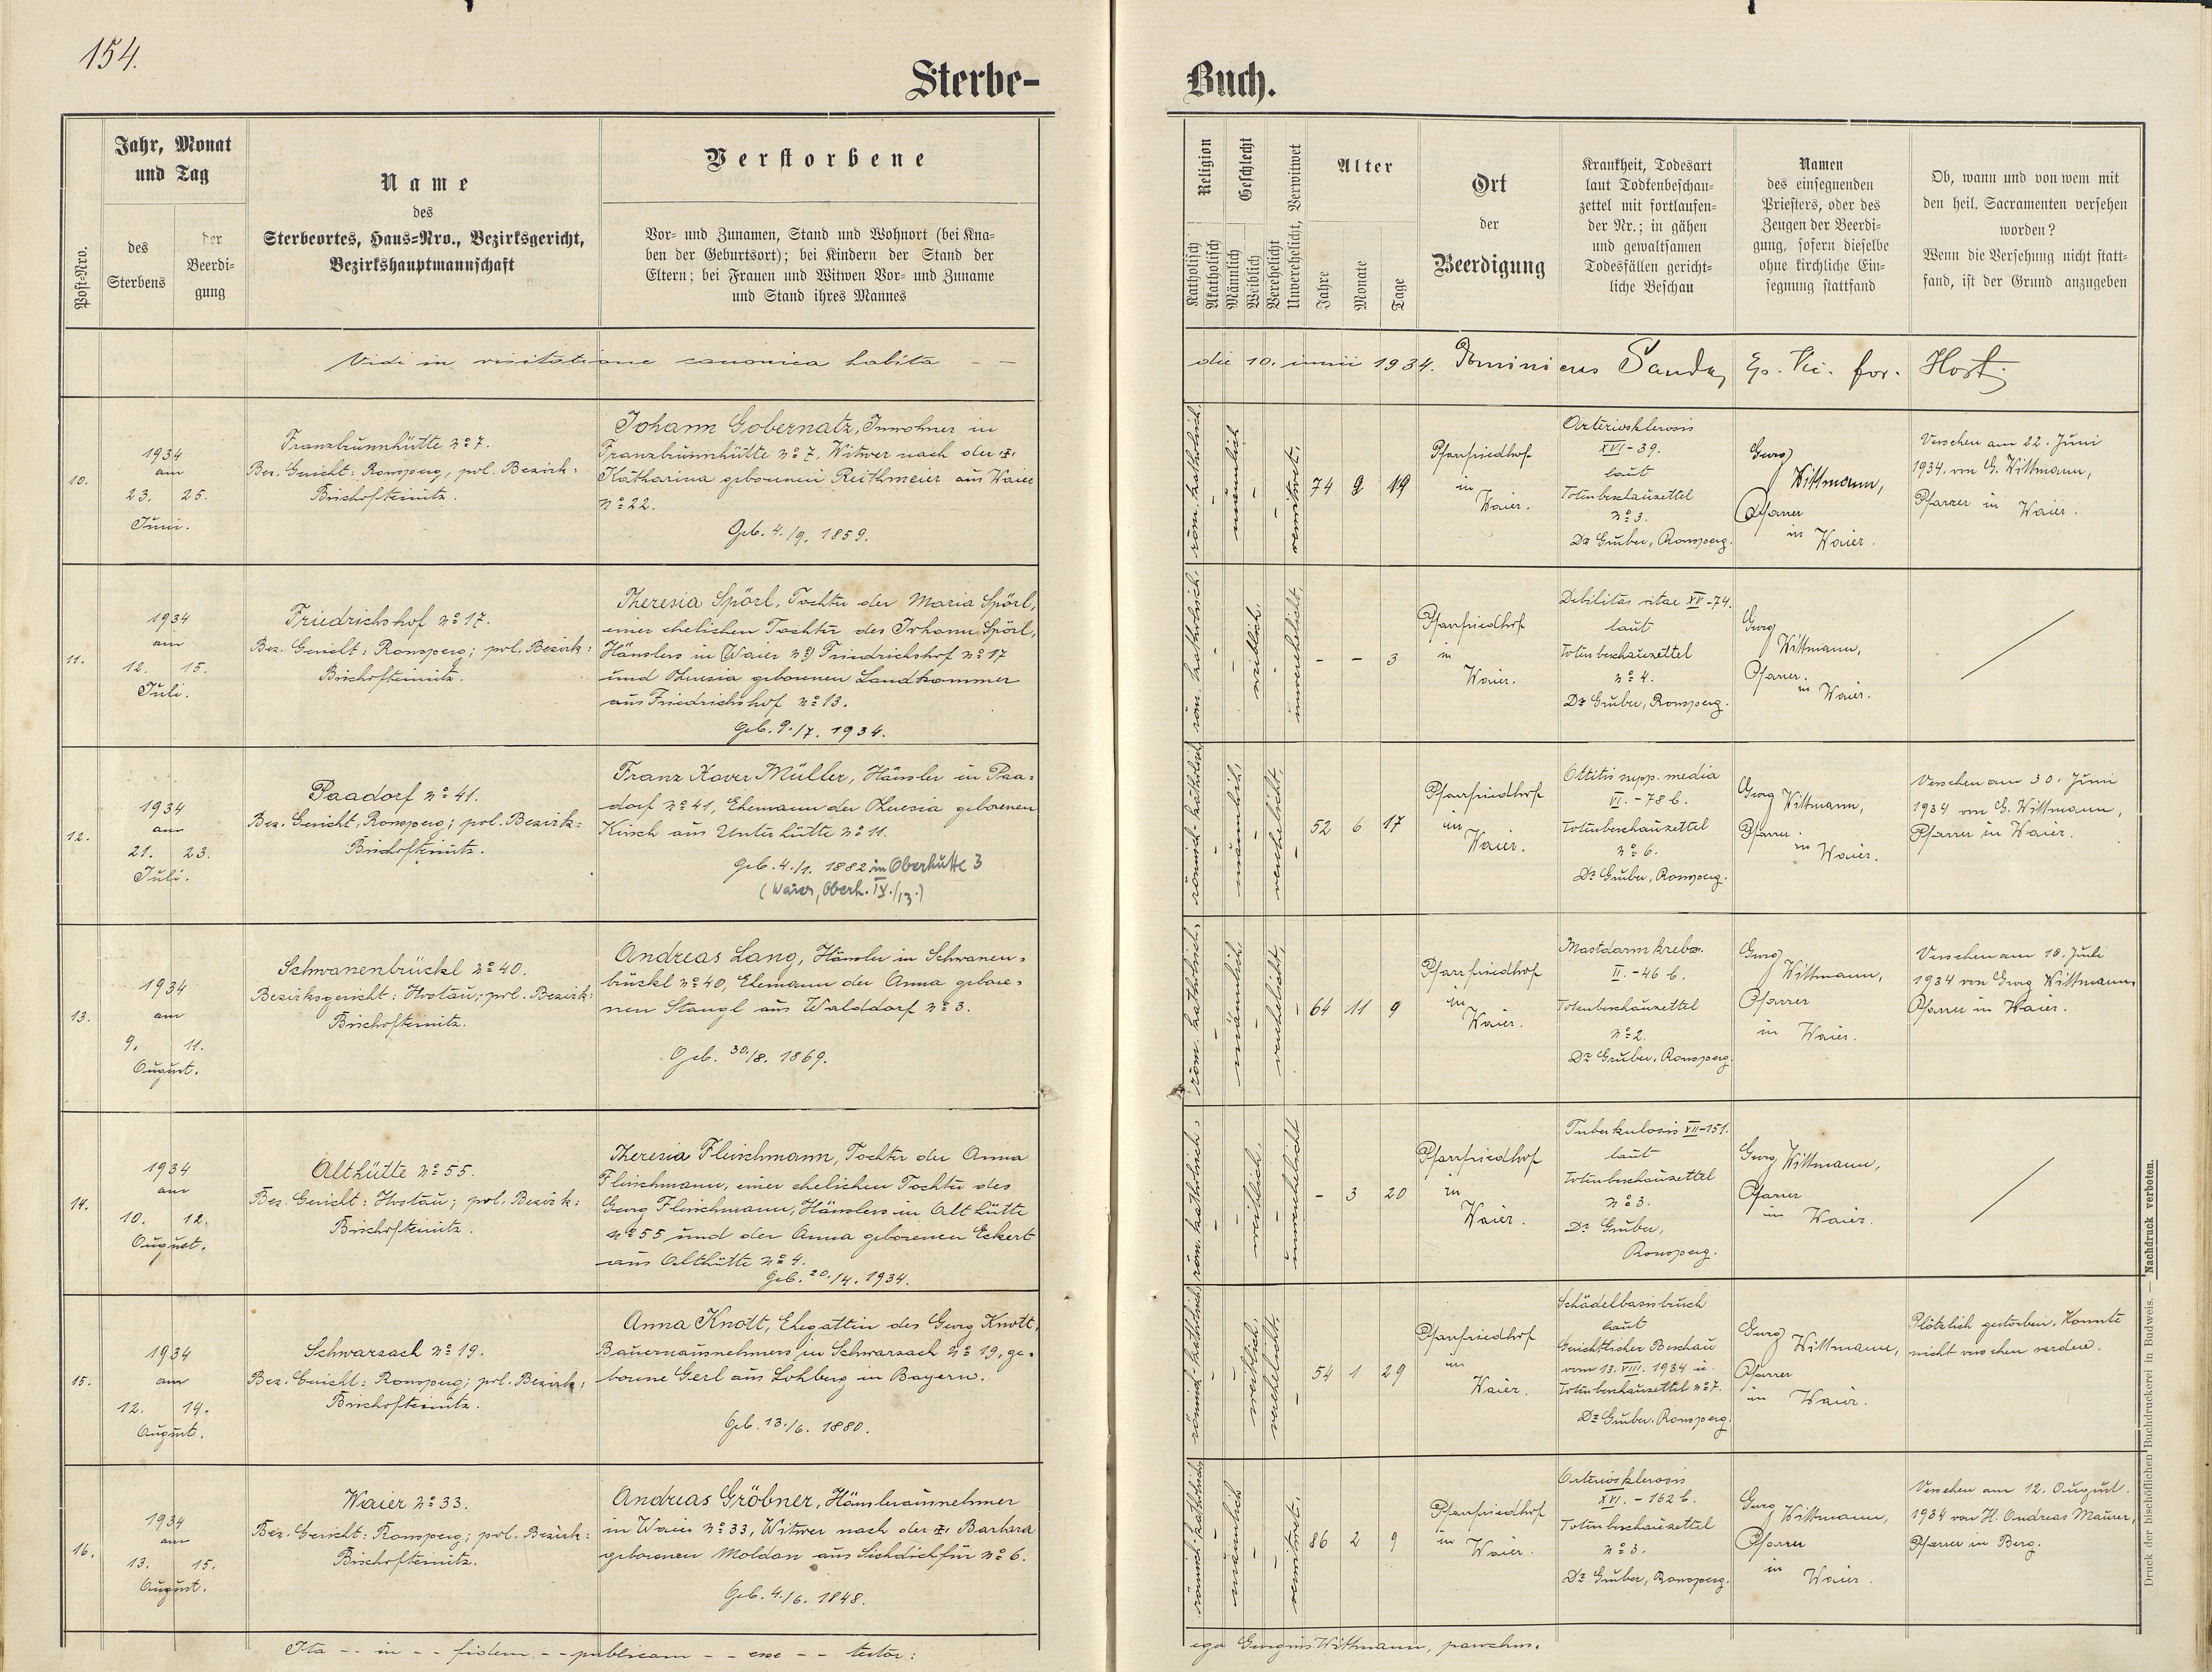 154.
Sterbe-
Buch.
Post-Nro.
Jahr, Monat
und Tag
des
Sterbens
der
Beerdi-
gung
Name
des
Sterbeortes, Haus-Nro., Bezirksgericht,
Bezirkshauptmannschaft
Verstorbene
Vor- und Zunamen, Stand und Wohnort (bei Kna-
ben der Geburtsort); bei Kindern der Stand der
Eltern; bei Frauen und Witwen Vor- und Zuname
und Stand ihres Mannes
Religion
Katholisch
Akatholisch
Geschlecht
Männlich
Weiblich
Verehelicht
Unverehelicht, Verwitwet
Alter
Jahre
Monate
Tage
Ort
der
Beerdigung
Krankheit, Todesart
laut Todtenbeschau-
zettel mit fortlaufen-
der Nr.; in gähen
und gewaltsamen
Todesfällen gericht-
liche Beschau
Namen
des einsegnenden
Priesters, oder des
Zeugen der Beerdi-
gung, sofern dieselbe
ohne kirchliche Ein-
segnung stattfand
Ob, wann und von wem mit
den heil. Sacramenten versehen
worden?
Wenn die Versehung nicht statt-
fand, ist der Grund anzugeben
Vidi in visitatione canonica habita - -
die 10. iunii 1934. Dominicus Sanda, Ep. Vic. for. Host.
10.
1934
am
23. 25.
Juni.
Franzbrunnhütte No 7.
Bez. Gericht: Ronsperg, pol. Bezirk:
Bischofteinitz.
Johann Gobernatz, Inwohner in
Franzbrunnhütte No 7, Witwer nach der
Katharina geborenen Reithmeier aus Waier
No 22.
Geb. 4./9. 1859.
röm. katholisch.
-
männlich
-
-
verwitwet.
74 9 19
Pfarrfriedhof
in
Waier.
Arteriosklerosis
XVI-39.
laut
Totenbeschauzettel
No 3.
Dr Gruber, Ronsperg.
Georg
Wittmann,
Pfarrer
in
Waier.
Versehen am 22. Juni
1934. von G. Wittmann,
Pfarrer in Waier.
11.
1934
am
12. 15.
Juli.
Friedrichshof No 17.
Bez. Gericht: Ronsperg; pol. Bezirk:
Bischofteinitz.
Theresia Spörl, Tochter der Maria Spörl,
einer ehelichen Tochter des Johann Spörl,
Häuslers in (Waier No) Friedrichshof No 17
und Theresia geborenen Landkammer
aus Friedrichshof No 13.
Geb. 9./7. 1934.
röm. katholisch.
-
-
weiblich
-
unverehelicht
- - 3
Pfarrfriedhof
in
Waier.
Debilitas vitae XV-74.
laut
Totenbeschauzettel
No 4.
Dr Gruber, Ronsperg.
Georg
Wittmann,
Pfarrer
in Waier.
12.
1934
am
21. 23.
Juli.
Paadorf No 41.
Bez. Gericht, Ronsperg; pol. Bezirk:
Bischofteinitz.
Franz Xaver Müller, Häusler in Paa-
dorf No 41, Ehemann der Theresia geborenen
Kirsch aus Unterhütte No 11.
geb. 4./1. 1882 in Oberhütte 3
(Waier, Oberh. IV./13.)
römisch-katholisch
-
männlich,
-
verehelicht,
-
52 6 17
Pfarrfriedhof
in
Waier.
Ottitis supp. media
VI. - 78 b.
Totenbeschauzettel
No 6.
Dr Gruber, Ronsperg.
Georg Wittmann,
Pfarrer
in Waier.
Versehen am 30. Juni
1934 von G. Wittmann,
Pfarrer in Waier.
13.
1934
am
9. 11.
August.
Schwanenbrückl No 40.
Bezirksgericht: Hostau; pol. Bezirk:
Bischofteinitz.
Andreas Lang, Häusler in Schwanen-
brückl No 40, Ehemann der Anna gebore-
nen Stangl aus Walddorf No 3.
Geb. 30./8. 1869.
röm. katholisch,
-
männlich,
-
verehelicht,
-
64 11 9
Pfarrfriedhof
in
Waier.
Mastdarmkrebs.
II. - 46 b.
Totenbeschauzettel
No 2.
Dr Gruber, Ronsperg.
Georg
Wittmann,
Pfarrer
in Waier.
Versehen am 10. Juli
1934 von Georg Wittmann,
Pfarrer in Waier.
14.
1934
am
10. 12.
August.
Althütte No 55.
Bez. Gericht: Hostau; pol. Bezirk:
Bischofteinitz.
Theresia Fleischmann, Tochter der Anna
Fleischmann, einer ehelichen Tochter des
Georg Fleischmann, Häuslers in Althütte
No 55 und der Anna geborenen Eckert
aus Althütte No 4.
Geb. 20./4. 1934.
röm. katholisch,
-
-
weiblich,
-
unverehelicht
- 3 20
Pfarrfriedhof
in
Waier.
Tuberkulosis VII-151.
laut
Totenbeschauzettel
No 3.
Dr Gruber,
Ronsperg.
Georg Wittmann,
Pfarrer
in Waier.
15.
1934
am
12. 14.
August.
Schwarzach No 19.
Bez. Gericht: Ronsperg; pol. Bezirk:
Bischofteinitz.
Anna Knott, Ehegattin des Georg Knott,
Bauernausnehmers in Schwarzach No 19, ge-
borene Gerl aus Lohberg in Bayern.
Geb. 13./6. 1880.
römisch-katholisch
-
-
weiblich,
verehelicht.
-
54 1 29
Pfarrfriedhof
in
Waier.
Schädelbasisbruch
laut
Gerichtlicher Beschau
vom 13. VIII. 1934 u.
Totenbeschauzettel No 7.
Dr Gruber, Ronsperg.
Georg
Wittmann,
Pfarrer
in Waier.
Plötzlich gestorben. Konnte
nicht versehen werden.
16.
1934
am
13. 15.
August.
Waier No 33.
Bez. Gericht: Ronsperg; pol. Bezirk:
Bischofteinitz.
Andreas Gröbner, Häuslerausnehmer
in Waier No 33, Witwer nach der Barbara
geborenen Moldan aus Sichdichfür No 6.
Geb. 4./6. 1848.
römisch-katholisch
-
männlich
-
-
verwitwet.
86 2 9
Pfarrfriedhof
in
Waier.
Arteriosklerosis
XVI. - 162 b.
Totenbeschauzettel
No 3.
Dr Gruber, Ronsperg.
Georg Wittmann,
Pfarrer
in
Waier.
Versehen am 12. August
1934 von H. Andreas Maurer,
Pfarrer in Berg.
Ita - - in - - fidem - - publicam - - esse - - testor:
ego Georgius Wittmann, parochus.
Druck der bischöflichen Buchdruckerei in Budweis. — Nachdruck verboten.